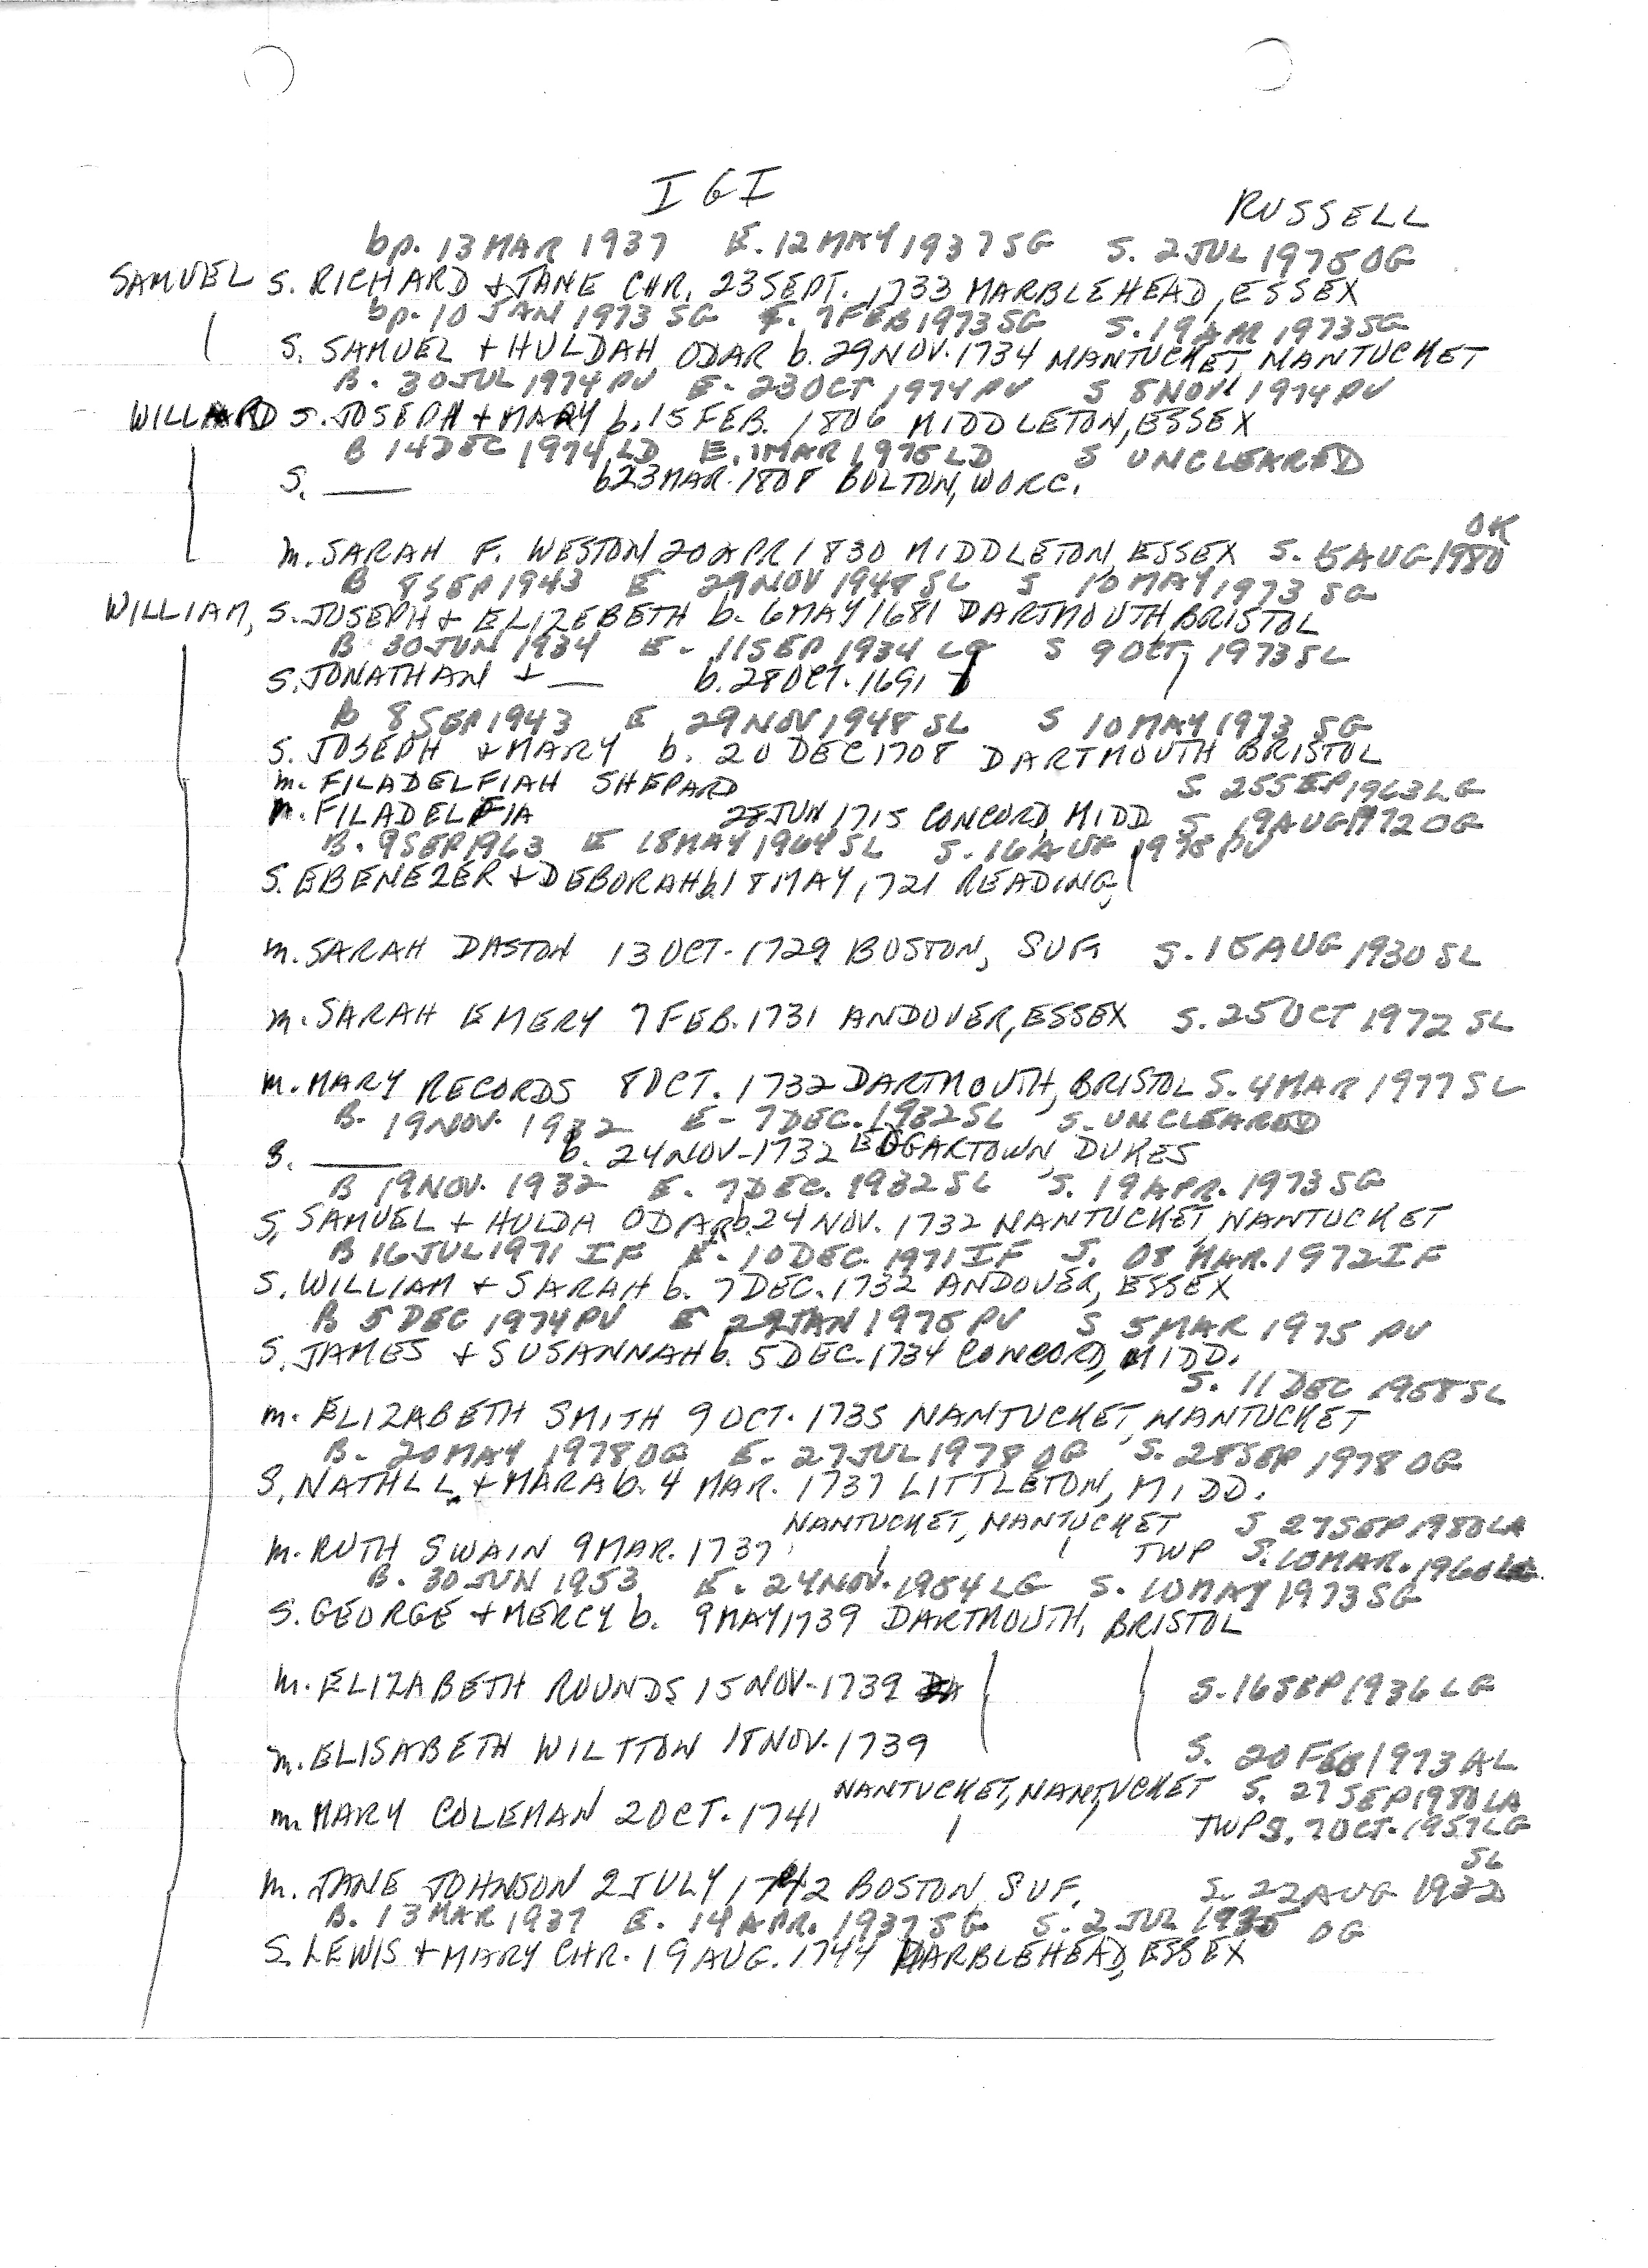 IGI
RUSSELL
bp. 13 MAR 1937 E. 12 MAY 1937 SG S. 2 JUL 1975 OG
SAMUEL S. RICHARD + JANE CHR. 23 SEPT. 1733 MARBLEHEAD, ESSEX
bp. 10 JAN 1973 SG E. 7 FEB 1973 SG S. 19 APR 1973 SG
S. SAMUEL + HULDAH ODAR b. 29 NOV. 1734 NANTUCKET, NANTUCKET
B. 30 JUL 1974 PV E. 23 OCT 1974 PV S 8 NOV 1974 PV
WILLARD S. JOSEPH + MARY b. 15 FEB. 1806 MIDDLETON, ESSEX
B 14 DEC 1974 LD E. 1 MAR 1975 LD S UNCLEARED
S. ___ b 23 MAR. 1808 BOLTON, WORC.
OK
m. SARAH F. WESTON 20 APR 1830 MIDDLETON, ESSEX S. 5 AUG 1980
B 8 SEP 1943 E 29 NOV 1948 SL S 10 MAY 1973 SG
WILLIAM, S. JOSEPH + ELIZEBETH b. 6 MAY 1681 DARTMOUTH, BRISTOL
B 30 JUN 1934 E - 11 SEP 1934 LG S 9 OCT 1973 SL
S. JONATHAN + ___ b. 28 OCT. 1691
B 8 SEP 1943 E 29 NOV 1948 SL S 10 MAY 1973 SG
S. JOSEPH + MARY b. 20 DEC 1708 DARTMOUTH BRISTOL
m. FILADELFIAH SHEPARD S. 25 SEP 1963 LG
m. FILADELFIA 28 JUN 1715 CONCORD, MIDD S 19 AUG 1972 OG
B. 9 SEP 1963 E 18 MAY 1964 SL S. 16 AUG 1975 PV
S. EBENEZER + DEBORAH b. 18 MAY, 1721 READING,
m. SARAH DASTON 13 OCT. 1729 BOSTON, SUF. S. 15 AUG 1930 SL
m. SARAH EMERY 7 FEB. 1731 ANDOVER, ESSEX S. 25 OCT 1972 SL
m. MARY RECORDS 8 OCT. 1732 DARTMOUTH, BRISTOL S. 4 MAR 1977 SL
B. 19 NOV. 1932 E - 7 DEC. 1932 SL S. UNCLEARED
S. ___ b. 24 NOV - 1732 EDGARTOWN, DUKES
B 19 NOV. 1932 E. 7 DEC. 1932 SL S. 19 APR. 1973 SG
S, SAMUEL + HULDA ODAR b. 24 NOV. 1732 NANTUCKET, NANTUCKET
B 16 JUL 1971 IF E. 10 DEC. 1971 IF S. 08 MAR. 1972 IF
S. WILLIAM + SARAH b. 7 DEC. 1732 ANDOVER, ESSEX
B 5 DEC 1974 PV E 29 JAN 1975 PV S 5 MAR 1975 PV
S. JAMES + SUSANNAH b. 5 DEC. 1734 CONCORD, MIDD.
S. 11 DEC 1958 SL
m. ELIZABETH SMITH 9 OCT. 1735 NANTUCKET, NANTUCKET
B - 20 MAY 1978 OG E. 27 JUL 1978 OG S. 28 SEP 1978 OG
S, NATHLL + MARA b. 4 MAR. 1737 LITTLETON, MIDD.
NANTUCKET, NANTUCKET S 27 SEP 1980 LA
m. RUTH SWAIN 9 MAR. 1737 TWP S. 10 MAR. 1960 LG
B. 30 JUN 1953 E. 24 NOV. 1954 LG S. 10 MAY 1973 SG
S. GEORGE + MERCY b. 9 MAY 1739 DARTMOUTH, BRISTOL
m. ELIZABETH ROUNDS 15 NOV - 1739 S. 16 SEP 1936 LG
m. ELISABETH WILTTON 18 NOV. 1739 S. 20 FEB 1973 AL
NANTUCKET, NANTUCKET S. 27 SEP 1980 LA
m. MARY COLEMAN 2 OCT. 1741 TWP S. 7 OCT. 1957 LG
SL
m. JANE JOHNSON 2 JULY 1742 BOSTON, SUF. S. 22 AUG 1932
B. 13 MAR 1937 E. 14 APR. 1937 SG S. 2 JUL 1975 OG
S. LEWIS + MARY CHR. 19 AUG. 1744 MARBLEHEAD, ESSEX